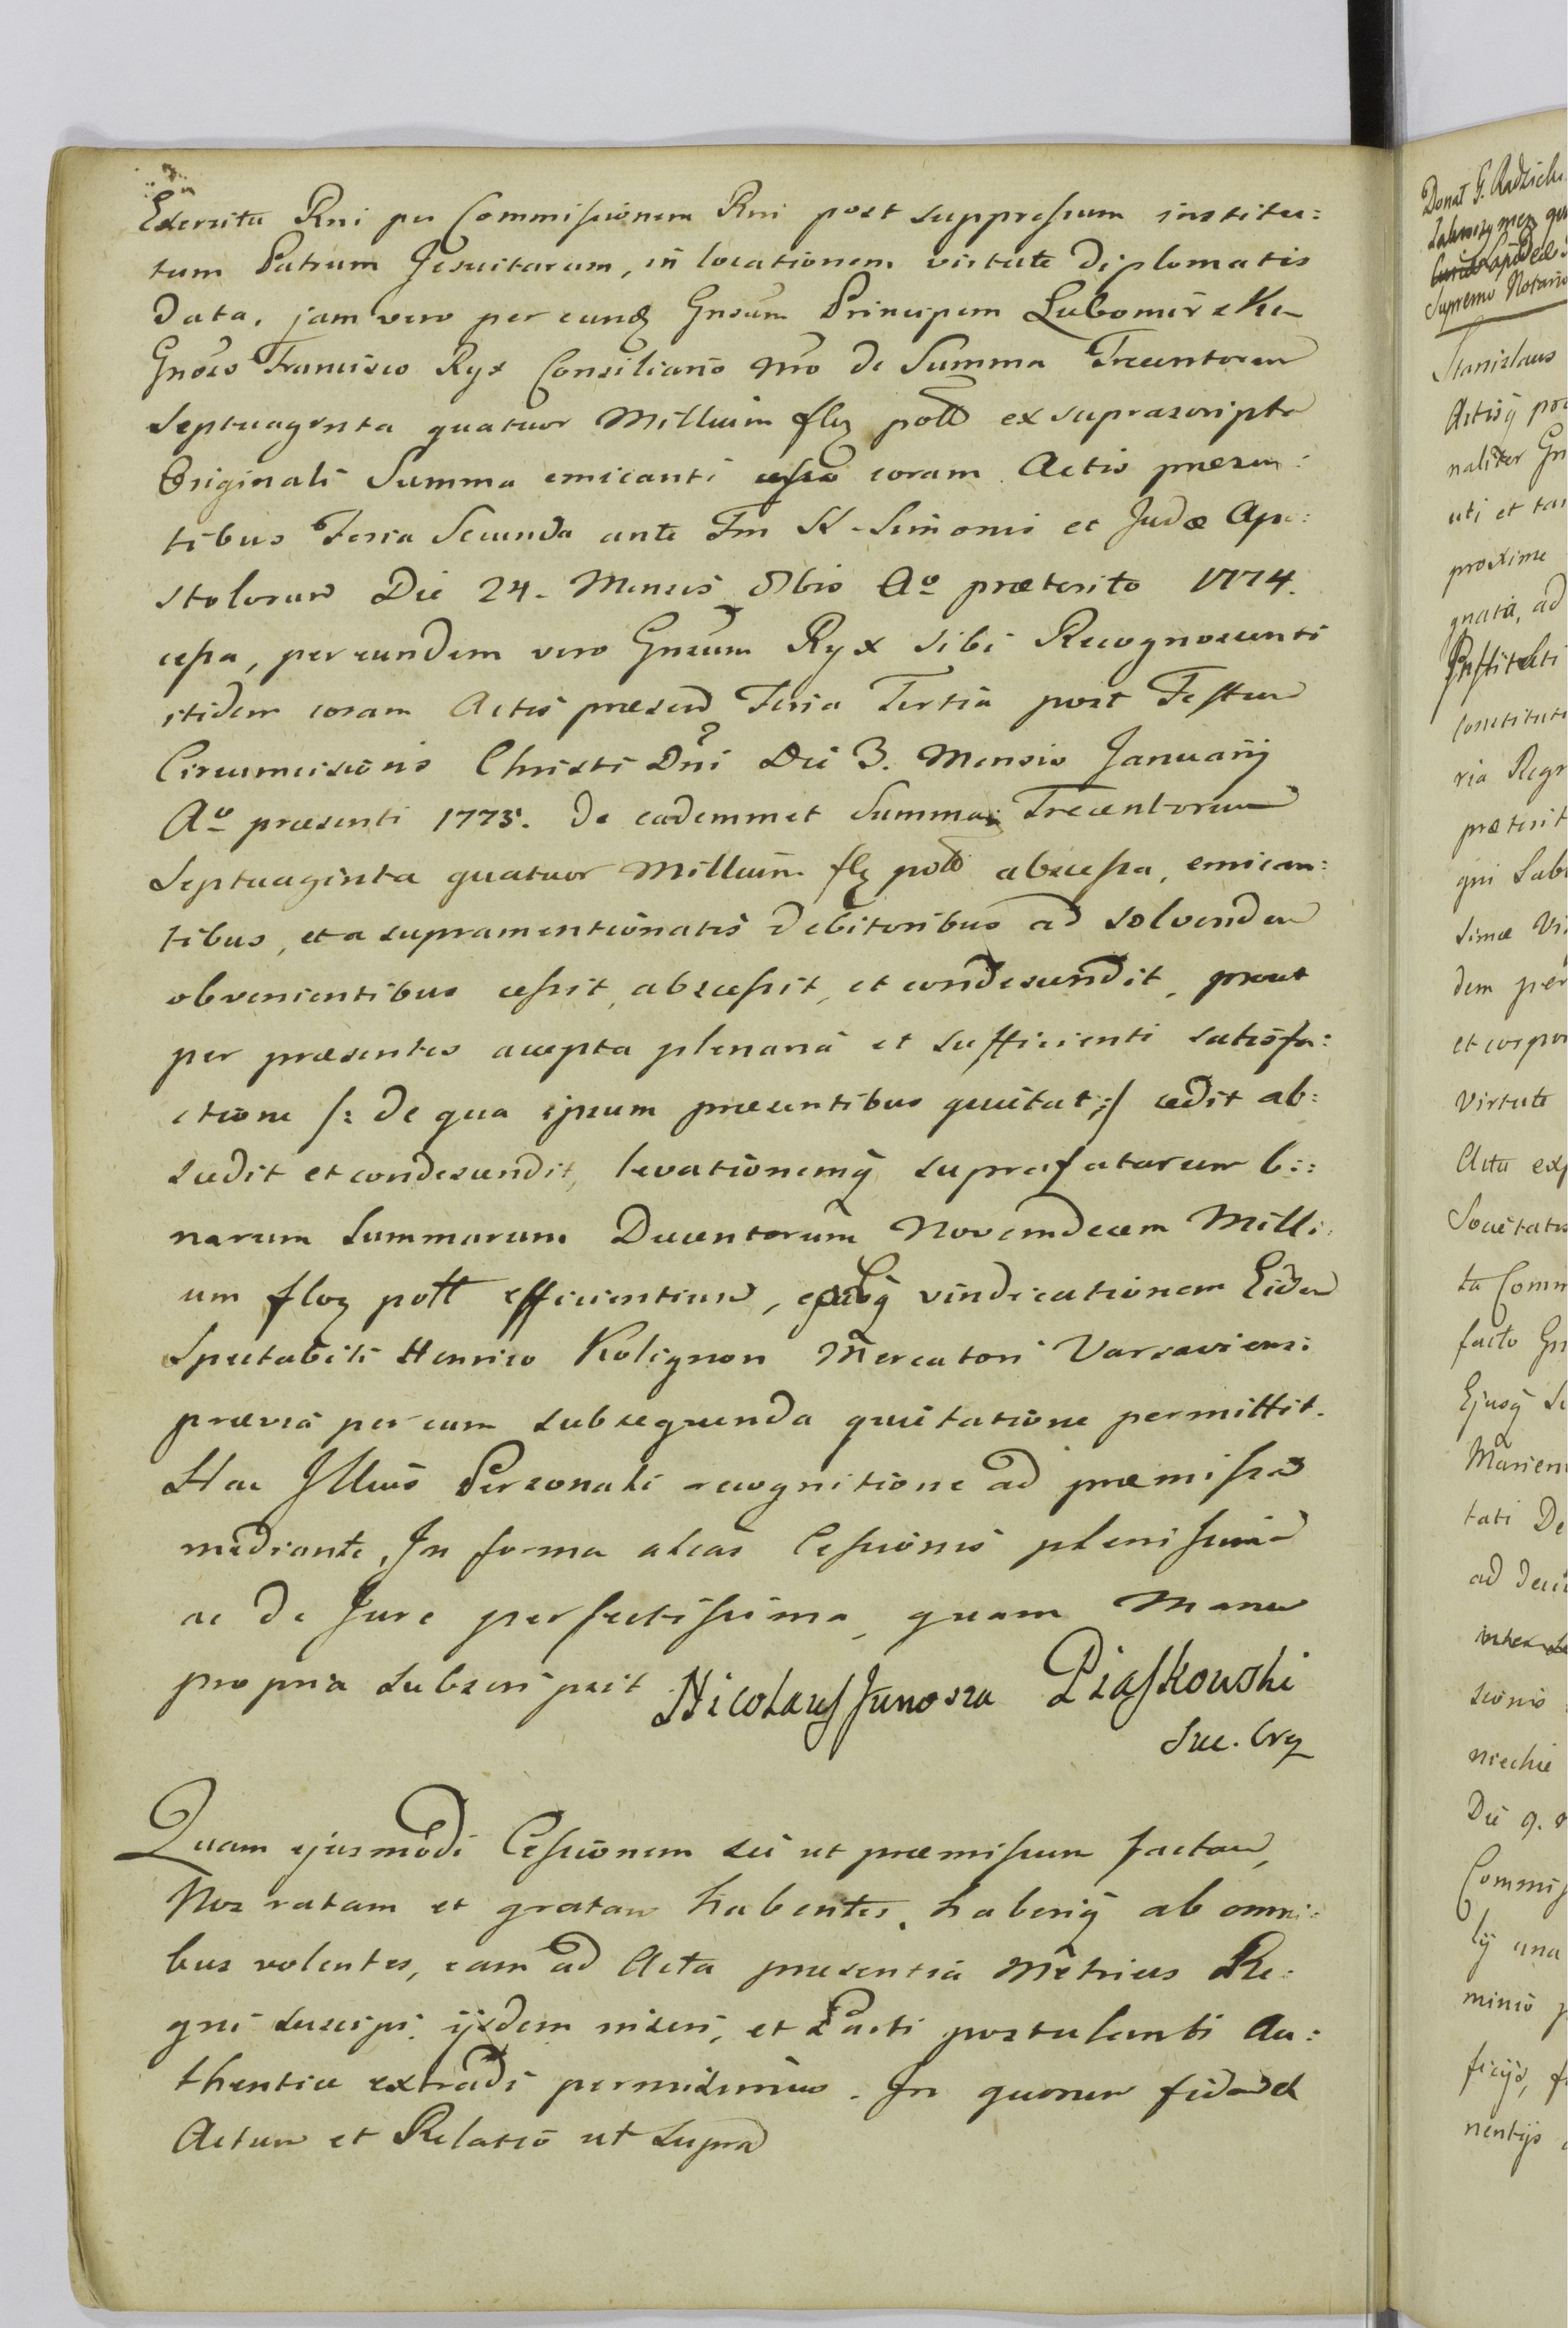 Exercitu Rni per Commissionem Rni post suppressum institu:
tum Patrum Jesuitarum, in locationem virtute Diplomatis
Data, jam vero per eundq Gnsum Principem Lubomirski
Gnoso Francisco Ryx Consiliario Nro de Summa Trecentorum
Septuaginta quatuor Millium flq poll ex suprascripta
Originali Summa emicanti coram Actis præsen:
tibus Feria Secunda ante Fm SS. Simonis et Judæ Apo:
stolorum Die 24. Mensis 8bris Ao præterito 1774.
cessa, per eundem vero Gnsum Ryx sibi Recognoscenti
itidem coram Actis præsen Feria Tertia post Festum
Circumcisionis Christi Dni Die 3. Mensis Januarij
Ao præsenti 1775. de eademmet Summa Trecentorum
Septuaginta quatuor Millium flq poll abscessa, emican:
tibus, et a supramentionatis Debitoribus ad solvendum
obvenientibus cessit, abscessit, et condescendit, prout
per præsentes accepta plenaria et sufficienti satisfa:
ctione /: de qua ipsum præsentibus quietat :/ cedit ab:
scedit et condescendit, levationemq suprafatarum bi:
narum Summarum Ducentorum Novemdecem Milli:
um floq poll efficientium, vindicationem Eidem
Spectabili Henrico Kolignon Mercatori Varsaviens:
prævia per eum subsequenda quietatione permittit.
Hac Illius Personali recognitione ad præmissa
mediante, In forma alias Cessionis plenissima
ac de Jure perfectissima, quam Manu
propria subscripsit Nicolaus Junosza Piaskowski
Suc. Crz
Quam ejusmodi Cessionem sic ut præmissum factam,
Nos ratam et gratam habentes, haberiq ab omni:
bus volentes, eam ad Acta præsentia Metrices Re:
gni suscipi, ijsdem inseri, et Parti postulanti Au:
thentice extradi permisimus. In quorum fidem
Actum et Relatio ut supra
Donat G. Radzicki
Supremo Notario
Stanislaus
Actisq
naliter Gn
uti et
proxime
gnata, ad
ria Regn
præterit
gni
simæ
dem per
et corpor
Virtute
Acta
Societatis
ta Comm
facto Gn
Ejusq
tati De
ad
Die 9.
Commis
lij una
minis
ficijs,
nentijs